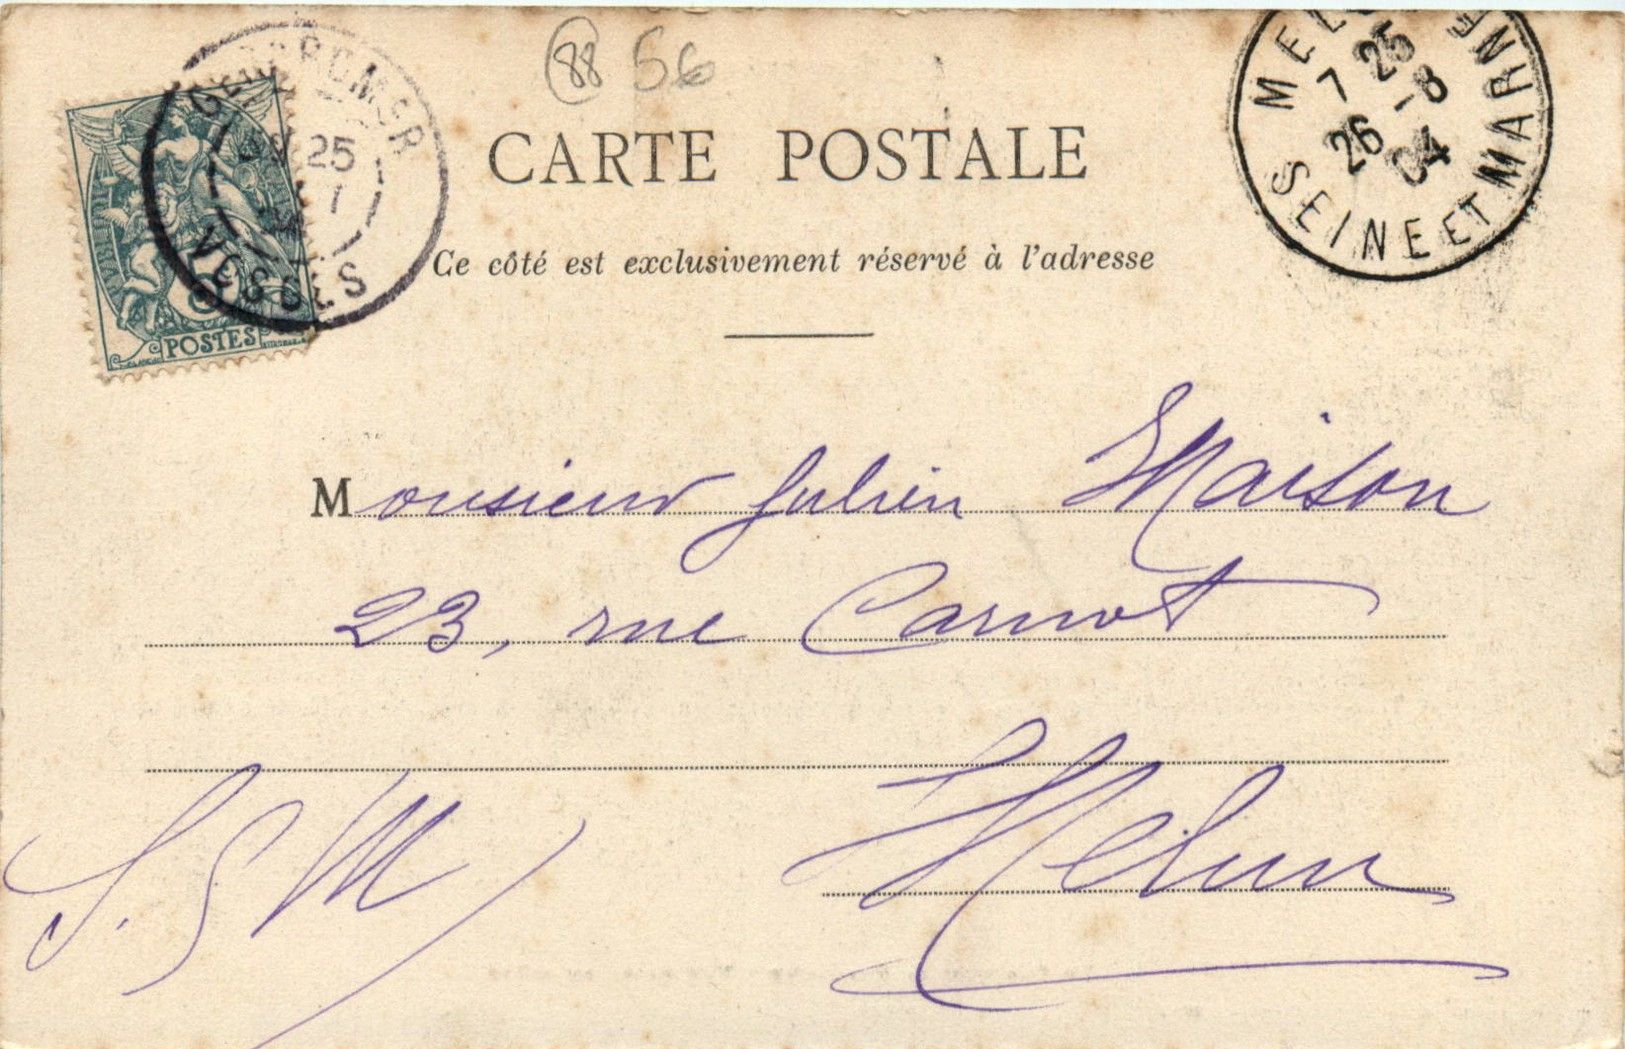 88 56
CARTE POSTALE
Ce côté est exclusivement réservé à l'adresse
25
VOSGES
POSTES
7 25 -1 8
26 04
SEINE ET MARNE
Monsieur Julien Maison
23, rue Carnot
Melun
S. G M